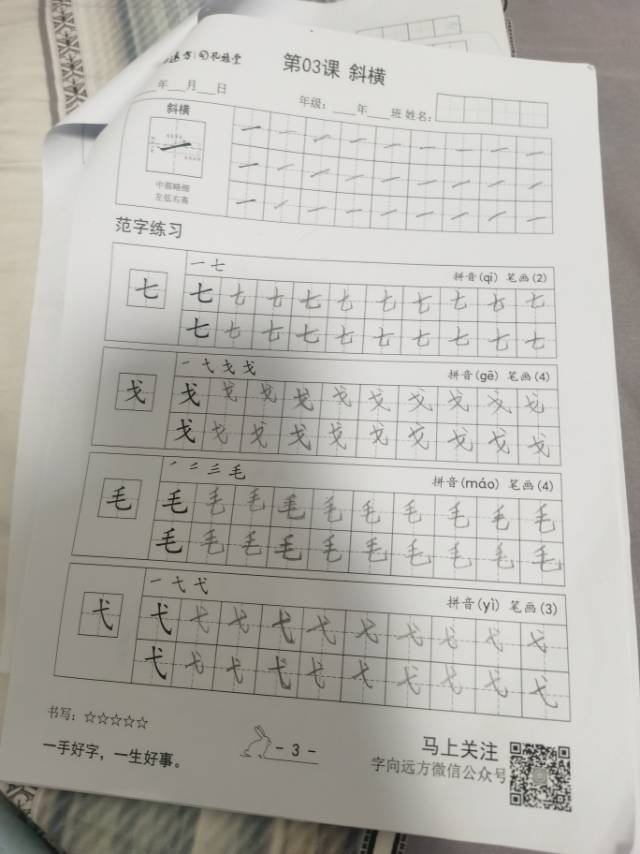 第03课 斜横
年 月 日
年级： 年 班 姓名：
斜横
中部略细
左低右高
范字练习
一 七
拼音(qī) 笔画(2)
七 七 七 七 七 七 七 七 七 七 七
七 七 七 七 七 七 七 七 七 七
一 弋 戈 戈
拼音(gē) 笔画(4)
戈 戈 戈 戈 戈 戈 戈 戈 戈 戈 戈
戈 戈 戈 戈 戈 戈 戈 戈 戈 戈
一 二 三 毛
拼音(máo) 笔画(4)
毛 毛 毛 毛 毛 毛 毛 毛 毛 毛 毛
毛 毛 毛 毛 毛 毛 毛 毛 毛 毛
一 七 弋
拼音(yì) 笔画(3)
弋 弋 弋 弋 弋 弋 弋 弋 弋 弋 弋
弋 弋 弋 弋 弋 弋 弋 弋 弋 弋
书写：☆☆☆☆☆
一手好字，一生好事。
- 3 -
马上关注
字向远方微信公众号